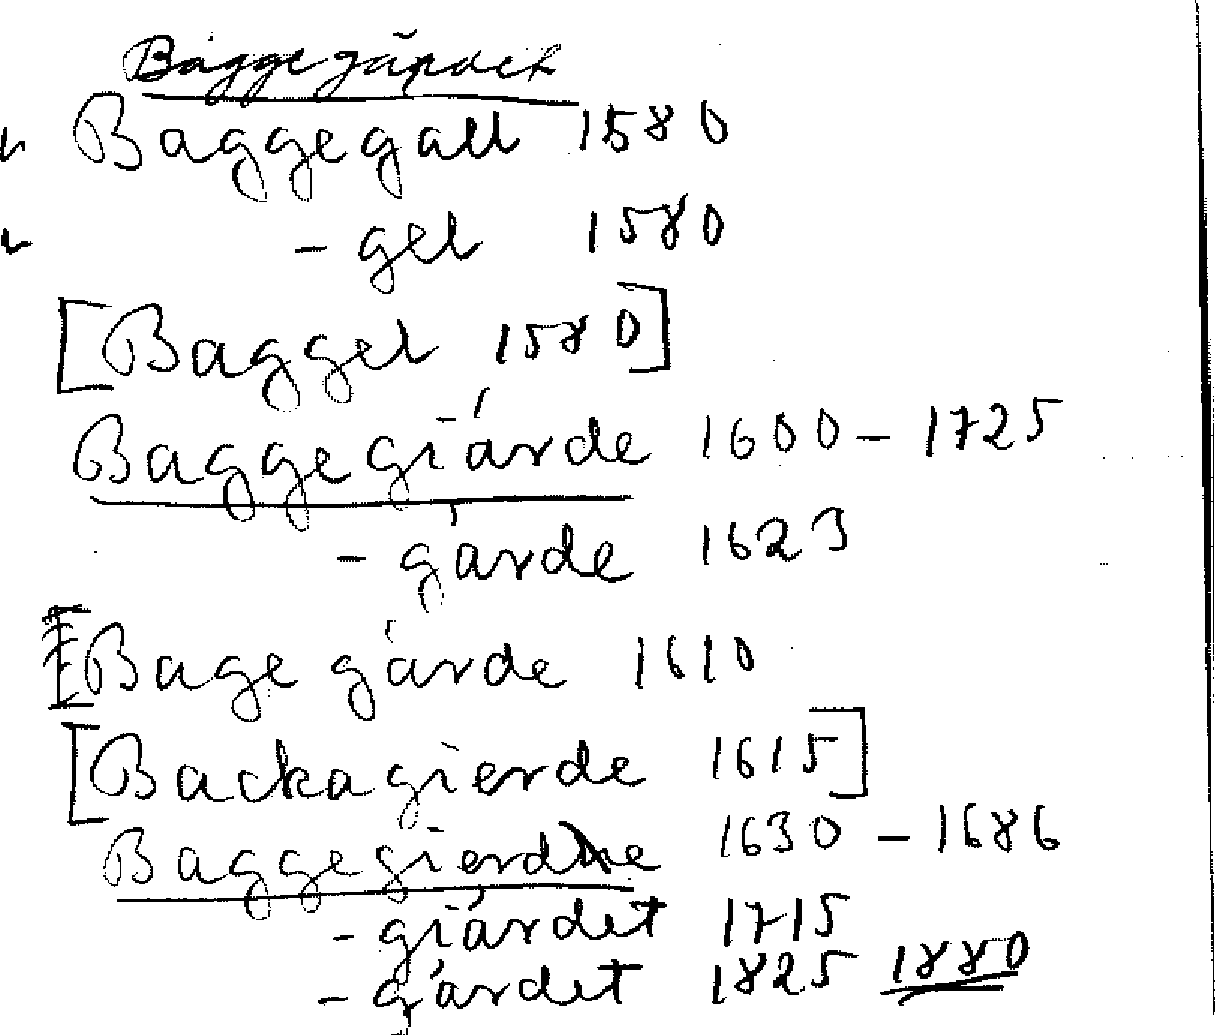 Baggegärdet
Baggegall 1580
- gel 1580
[Baggel 1580]
Baggegiärde 1600 - 1725
- gärde 1623
[Bage gärde 1610
[Backagierde 1615]
Baggegierde 1630 - 1686
- giärdet 1715
- gärdet 1825 1880